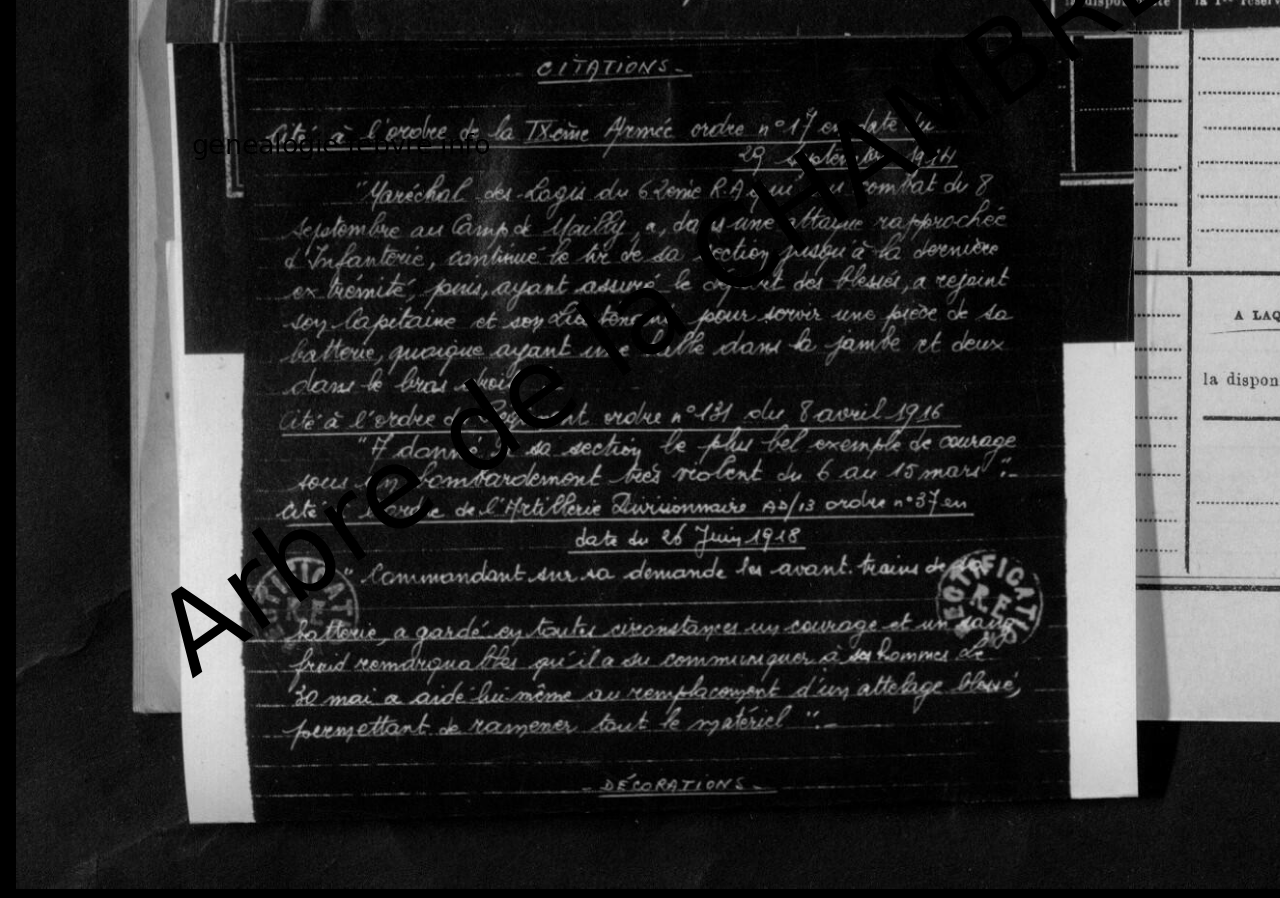 la disponibilité
la 1re réserv
CITATIONS_
Cité à l'ordre de la IXème Armée ordre n°17 en date du
29 septembre 1914
genealogie
info
"Maréchal des Logis du 62ème R.A. qui au combat du 8
septembre au Camp de Mailly, a, dans une attaque rapprochée
d'Infanterie, continué le tir de sa section jusqu'à la dernière
extrémité, puis, ayant assuré le départ des blessés, a rejoint
son Capitaine et son Lieutenant pour servir une pièce de sa
batterie, quoique ayant une balle dans la jambe et deux
dans le bras droit
Cité à l'ordre du Régiment ordre n°131 du 8 avril 1916
"A donné à sa section le plus bel exemple de courage
sous un bombardement très violent du 6 au 15 mars".-
Cité à l'ordre de l'Artillerie Divisionnaire AD/13 ordre n°37 en
date du 26 Juin 1918
"Commandant sur sa demande les avant-trains de sa
batterie, a gardé en toutes circonstances un courage et un sang
froid remarquables qu'il a su communiquer à ses hommes Le
30 mai a aidé lui-même au remplacement d'un attelage blessé,
permettant de ramener tout le matériel".-
_DÉCORATIONS_
RECTIFICATION
RE
RECTIFICATION
RE
A LAQ
la dispon
Arbre de la CHAMBRE